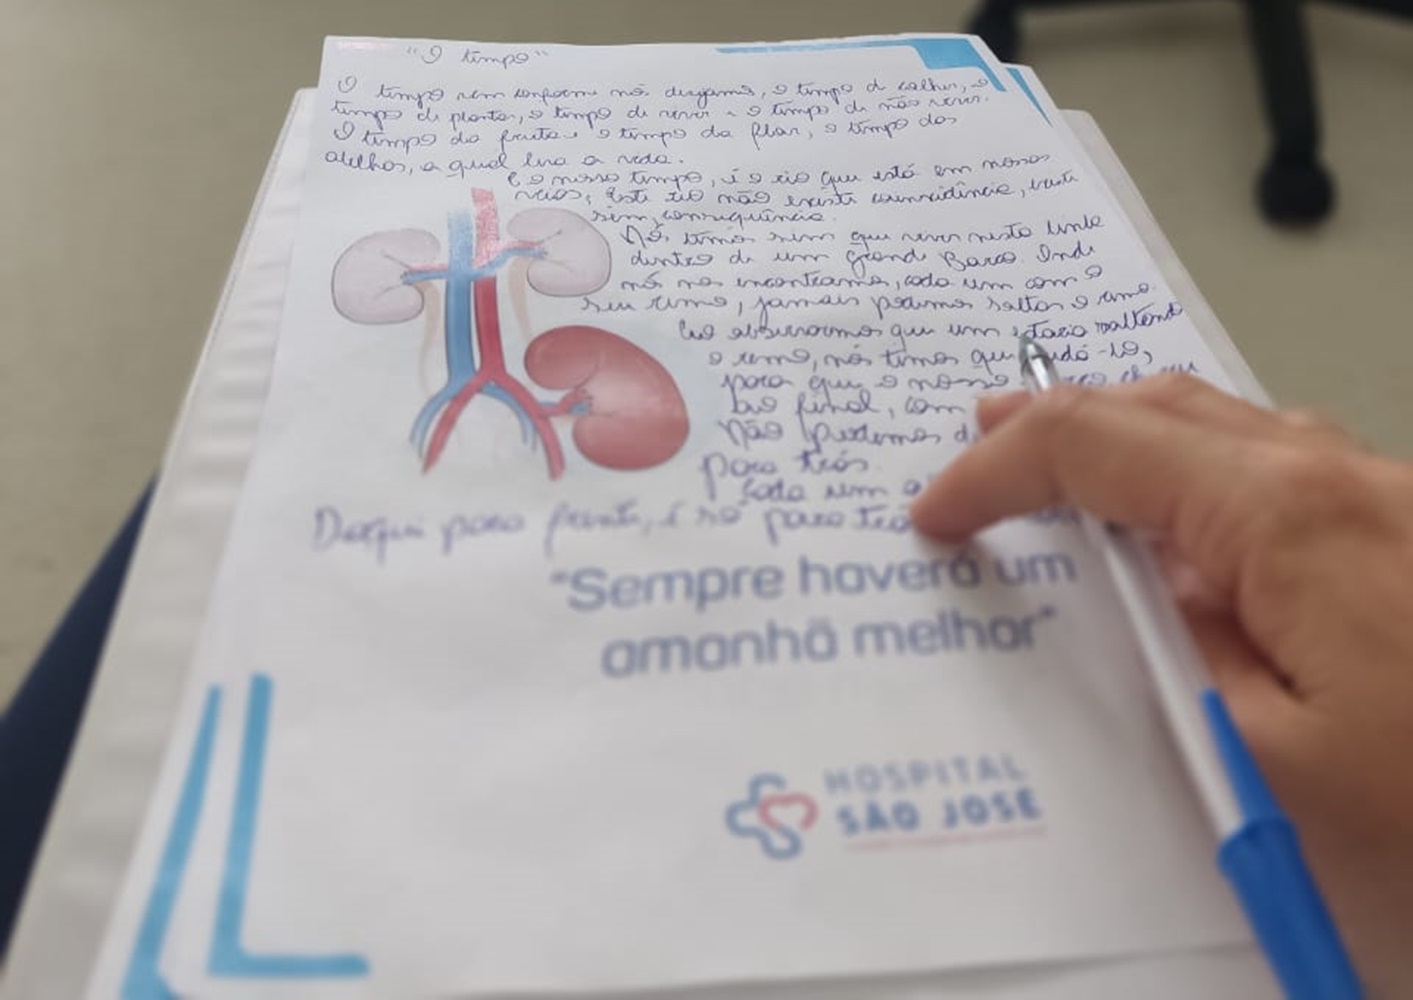 "O tempo"
O tempo vem conforme nós digamos, o tempo de colher, o
tempo de plantar, o tempo de viver e o tempo de não viver.
O tempo da fruta e o tempo da flor, o tempo dos
atilhos, a qual leva a vida.
E o nosso tempo, é o rio que está em nossas
veias, este rio não existe coincidência, existe
sim, consequência.
Nós temos sim que viver neste lindo
dentro de um grande Barco. Onde
nós nos encontramos, cada um com o
seu remo, jamais podemos soltar o remo.
Se observarmos que um estaria soltando
o remo, nós temos que
para que o nosso
ao final, com
Não podemos
para trás.
Cada um
Daqui para frente, é só para trás
"Sempre haverá um
amanhã melhor"
HOSPITAL
SÃO JOSÉ